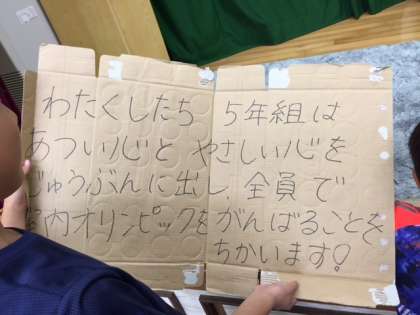 わたくしたち 5年組は
あつい心と やさしい心を
じゅうぶんに出し、全員で
室内オリンピックをがんばることを
ちかいます!